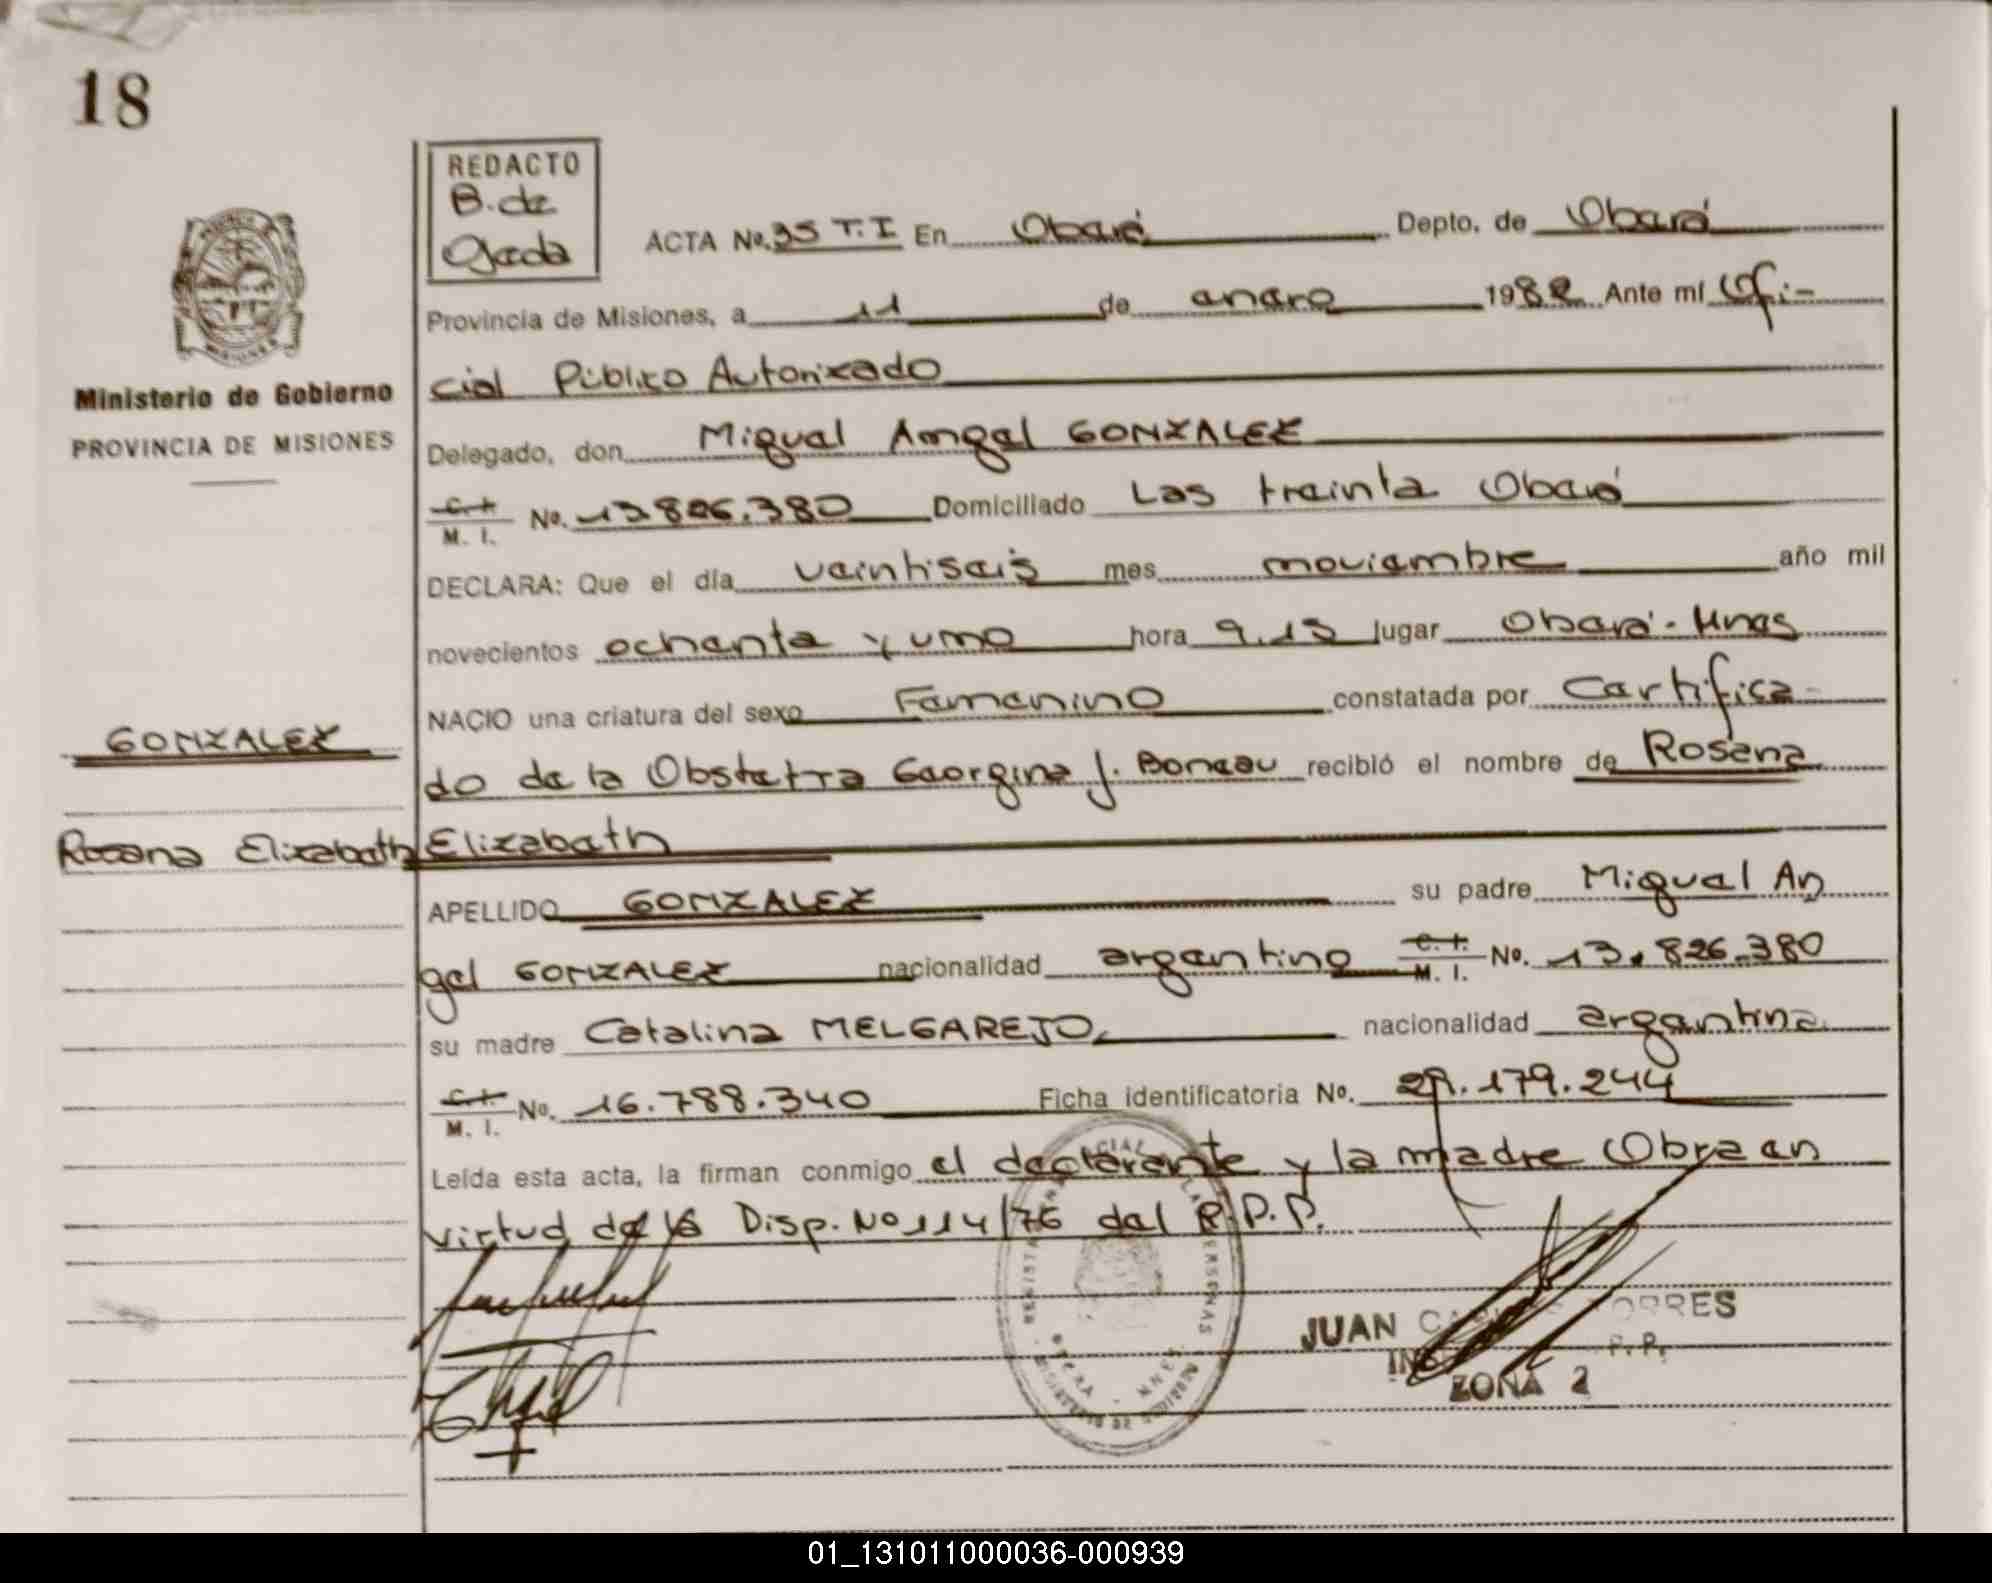 18
REDACTO
B. de
Ojeda
ACTA No. 35 T. I En Oberá Depto. de Oberá
Provincia de Misiones, a 11 de enero 1982 Ante mí Ofi-
cial Público Autorizado
Ministerio de Gobierno
PROVINCIA DE MISIONES
MISIONES
Delegado, don Miguel Angel GONZALEZ
C. I. M. I. No. 13826.380 Domiciliado Las treinta Oberá
DECLARA: Que el día veintiseis mes noviembre año mil
novecientos ochenta y uno hora 9.15 lugar Oberá - Mnes
NACIO una criatura del sexo Femenino constatada por Certifica-
GONZALEZ
do de la Obstetra Georgina J. recibió el nombre de Rosana
Rosana Elizabeth
Elizabeth
APELLIDO GONZALEZ su padre Miguel An
gel GONZALEZ nacionalidad argentino C. I. M. I. No. 13.826.380
su madre Catalina MELGAREJO nacionalidad argentina
C. I. M. I. No. 16.788.340 Ficha identificatoria No. 29.179.244
Leída esta acta, la firman conmigo el declarante y la madre Obra en
virtud de la Disp. No 114/76 del R.P.P.
JUAN CARLOS TORRES
P. P.
ZONA 2
01_131011000036-000939